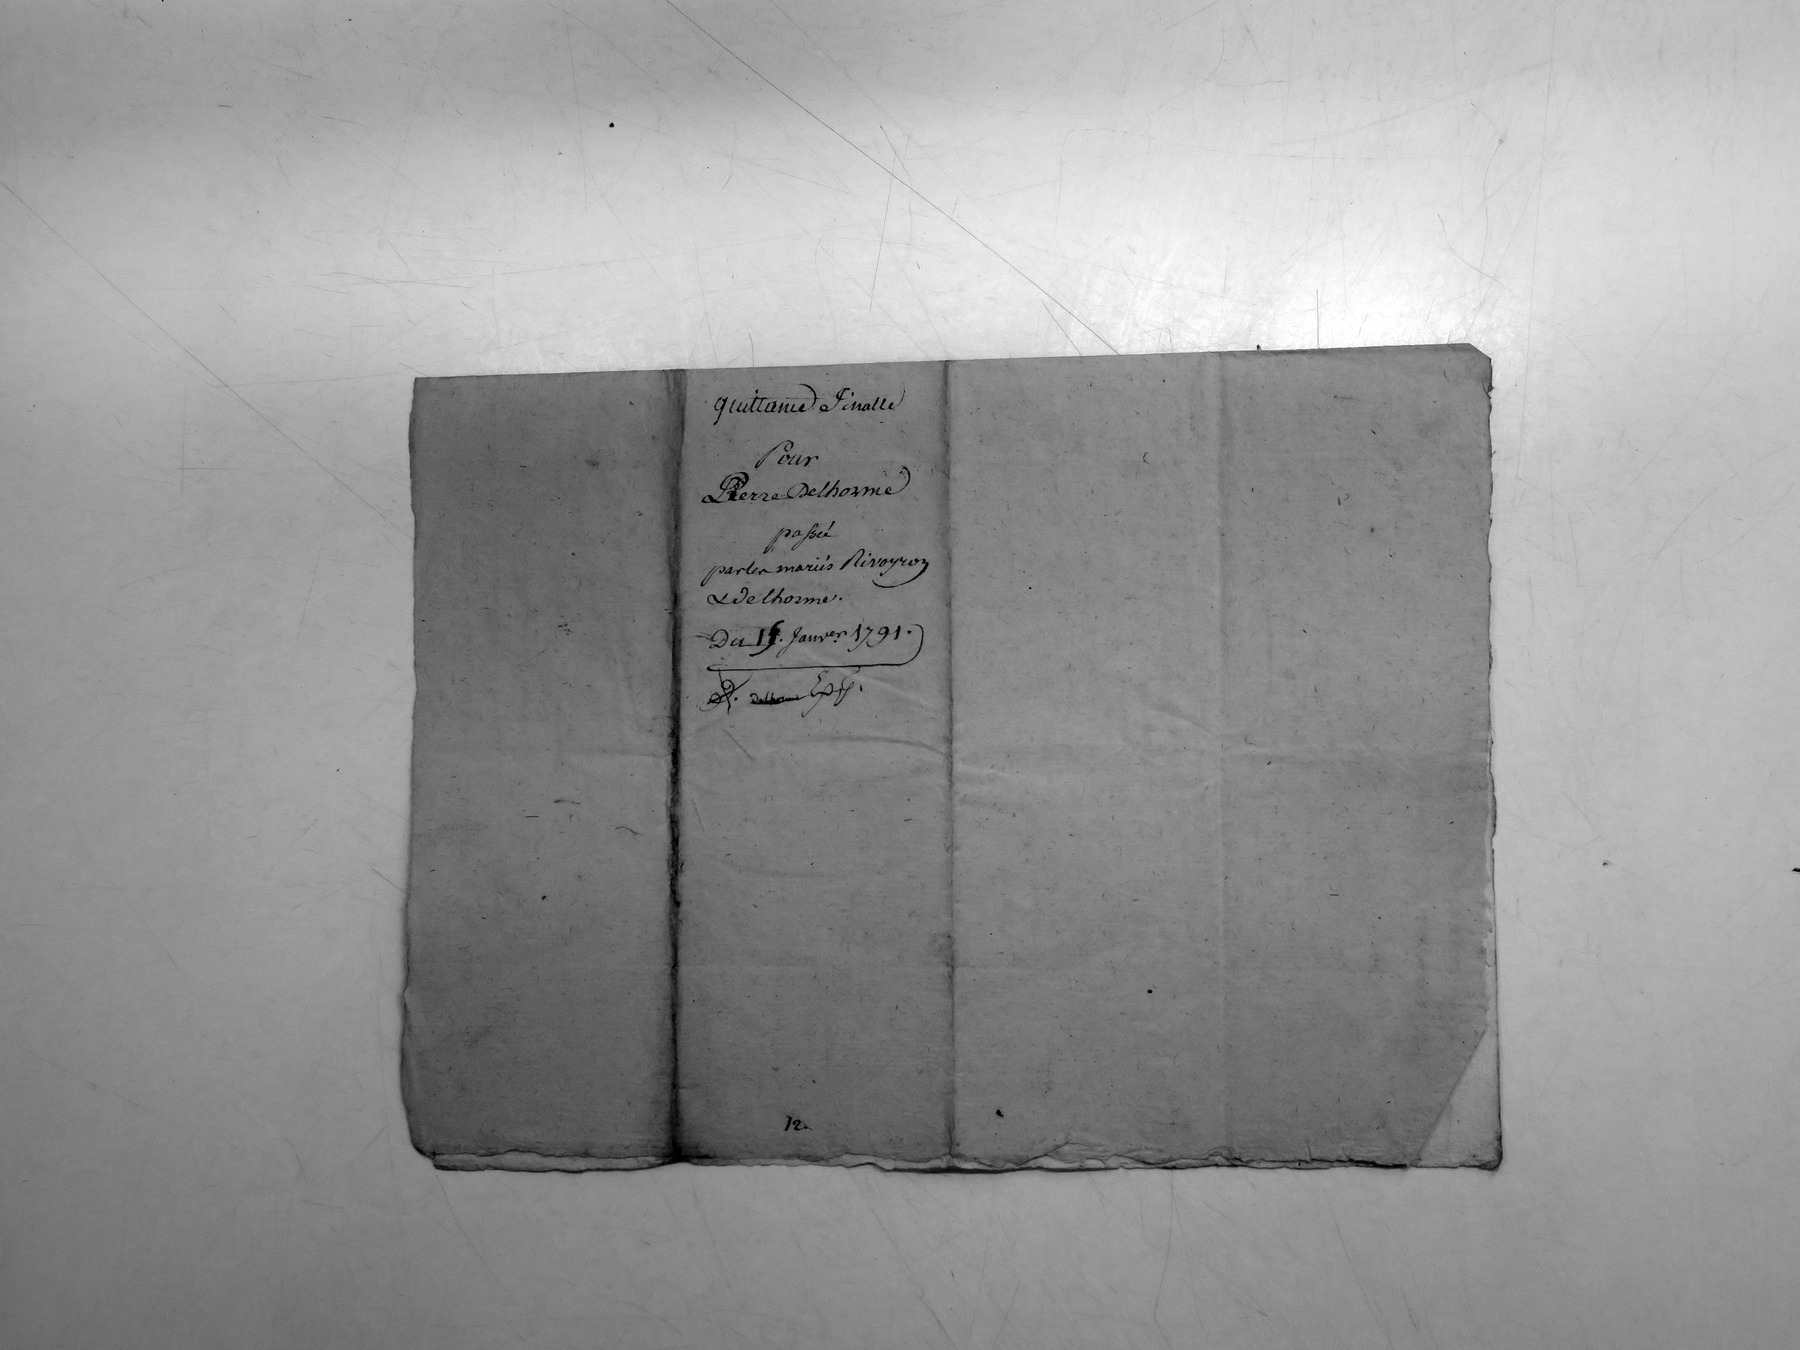 quittance Finalle
Pour
Pierre Delhorme
passée
par les mariés Rivoyron
& delhorme.
Du 15. Janver. 1791.
Delhorme
12.